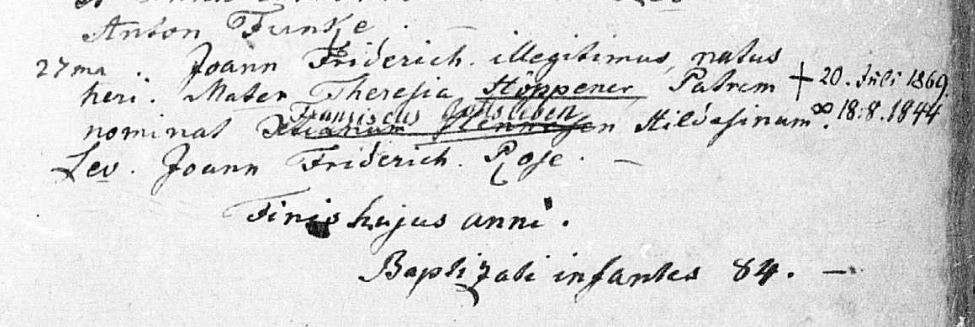 Anton Funke
27ma. Joann Friderich. illegitimus, natus
heri. Mater Theresia Höppener, Patrem + 20. Juli 1869.
Franciscus Gottsleben ∞ 18.8.1844
nominat Hennesen Hildesinum.
Lev. Joann Friderich. Rose. —
Finis hujus anni.
Baptizati infantes 84. —